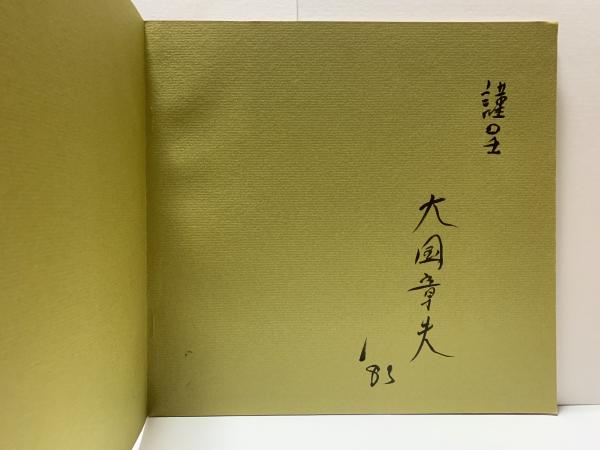 謹呈
大国章夫
'83